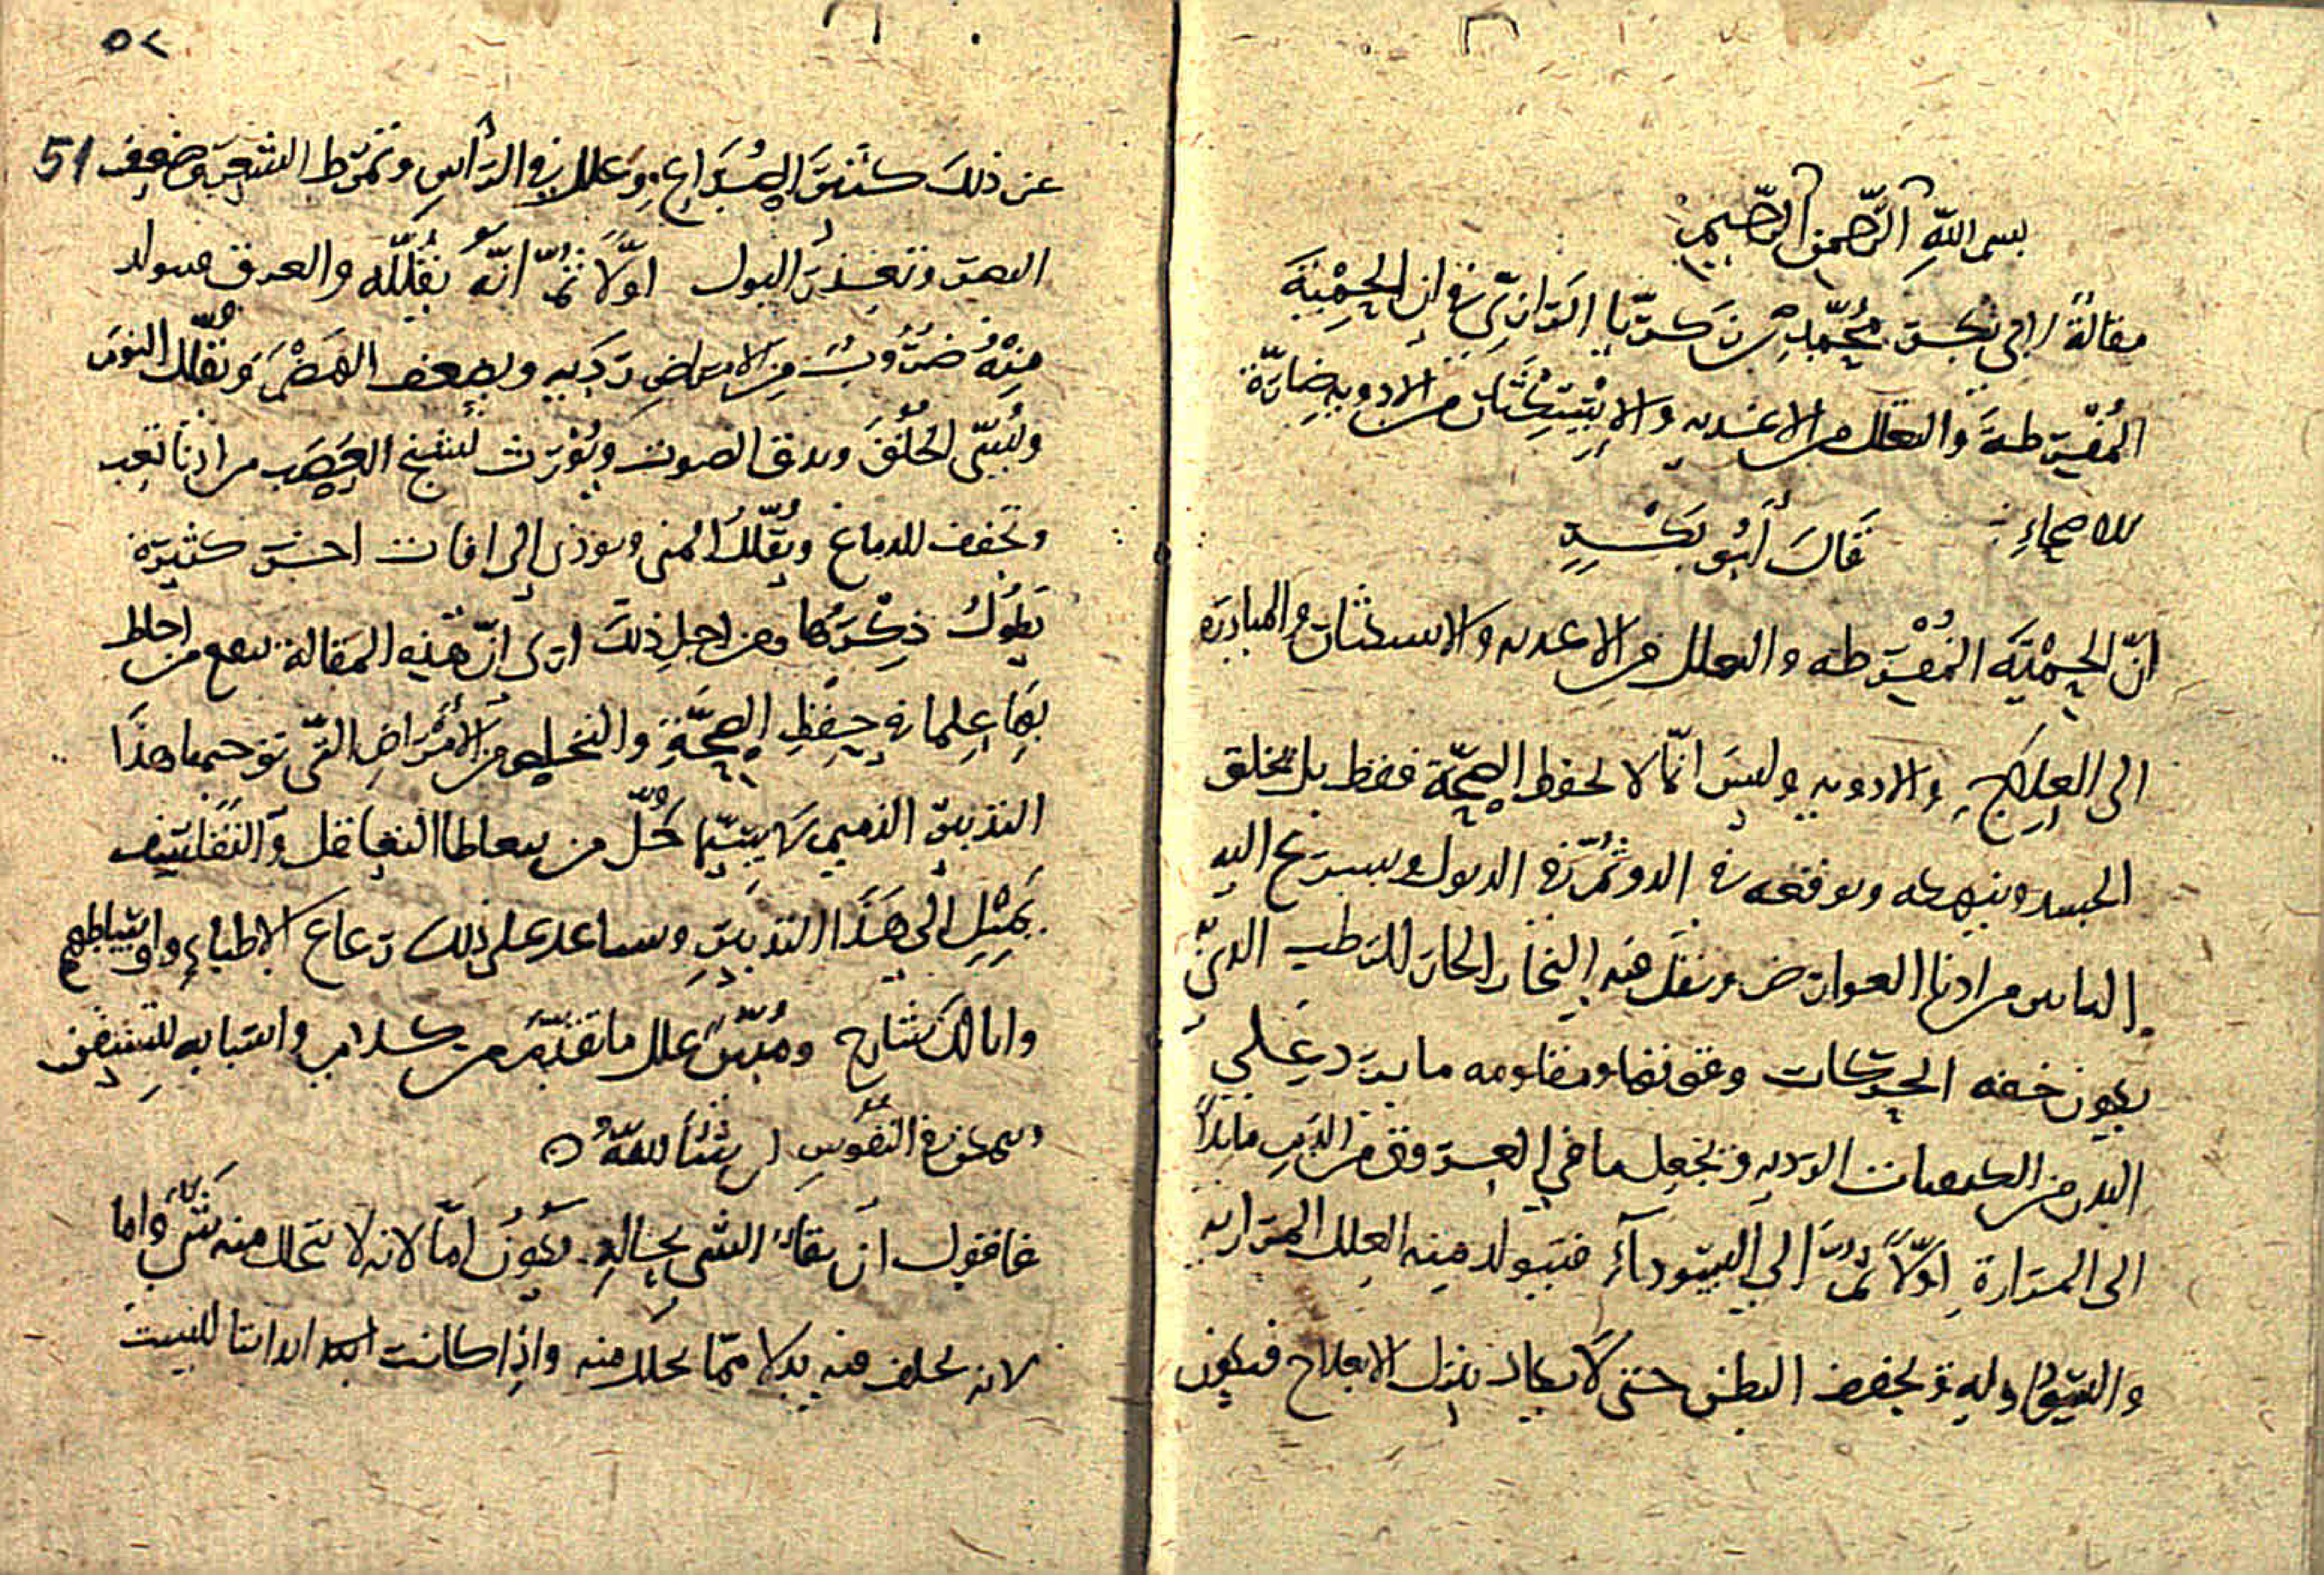 بسم الله الرحمن الرحيم
مقالةً لابى بكر محمّد بن زكريّا الرّازىّ فى ان الحِمْيَة
المُفْرطة والتقلل من الاغذيه والاِسْتِكْثَار من الادويه ضارّة
للاصحاءِ قَالَ أَبُو بَكْرٍ
انّ الحِمْيَه المُفْرطه والتعلل من الاغذيه والاستكثار والمبادره
الى العِلاج والادويه وليسَ انّما لا تحفظ الصِحَّة فقط بل تخلق
الجسد وينهكه ويوقعه فى الدق ثمّ فى الدبول ويسرع اليه
الناس من ادنا العوارض ويقل فيه البخار الحار الرطب الذىّ
يكون خفه الحركات وفيها ومقاومه ما يرد علي
البدن من الكيفيات الرديه ويجعل ما في العروق من الدم مايلاً
الى المرارة اوّلاً ثمّ الى السّودآءِ فيتولد منه العِلل المراريه
والسّوداويه ويجفف البطن حتى لا يكاد ينزل الا بعلاج فيكون
٥٢
عن ذلك كثرة الصُدَاعِ وعلل فى الرّأسِ وتمرّط الشعر وضعف 51
البصر وتغزر البول اوّلاً ثمّ انّهُ يُقلّله والعرق فيتولد
مِنْهُ ضُرُوبٌ من الامراض رديه ويضعف الهضْمَ وَيُقلّل النوم
ويُبسّ الحُلُقَ ويدق الصوت ويُوْرث تشنج العَصَب من ادنا تعب
وتجفف الدماغ ويُقلّل المنى ويوذى إلى افات اخرَ كثيرة
يَطُولُ ذِكْرُها ومن اجلِ ذلك ارى انّ هَذِه المَقالة ينفع من احاط
بِهَا عِلما فى حِفْظِ الصِحَّة والتخلص من الأَمْرَاضِ التّى توجبها هذَا
التدبير الذميم لا سِيَّما كُلّ من يتعاطا التعاقل وَالتَفَلسف
يَمْيل الى هَذا التدبير ويساعد على ذلك رعاع الاطباءِ واوساطهم
وانا لك شارح ومُبيّنٌ علل ما تقدّمَ من كلامى واسبابه لِتستقر
ويتمكن فى النفُوسِ ان شَآ اللّهُ
فاقول ان بقآءَ الشى بحالهِ يكونُ امّا لانه لا يتحلل منه شَىءٌ واما
لانه يخلف فيه بدلا ممّا تحلّل منه واذا كانت ابداننا ليست